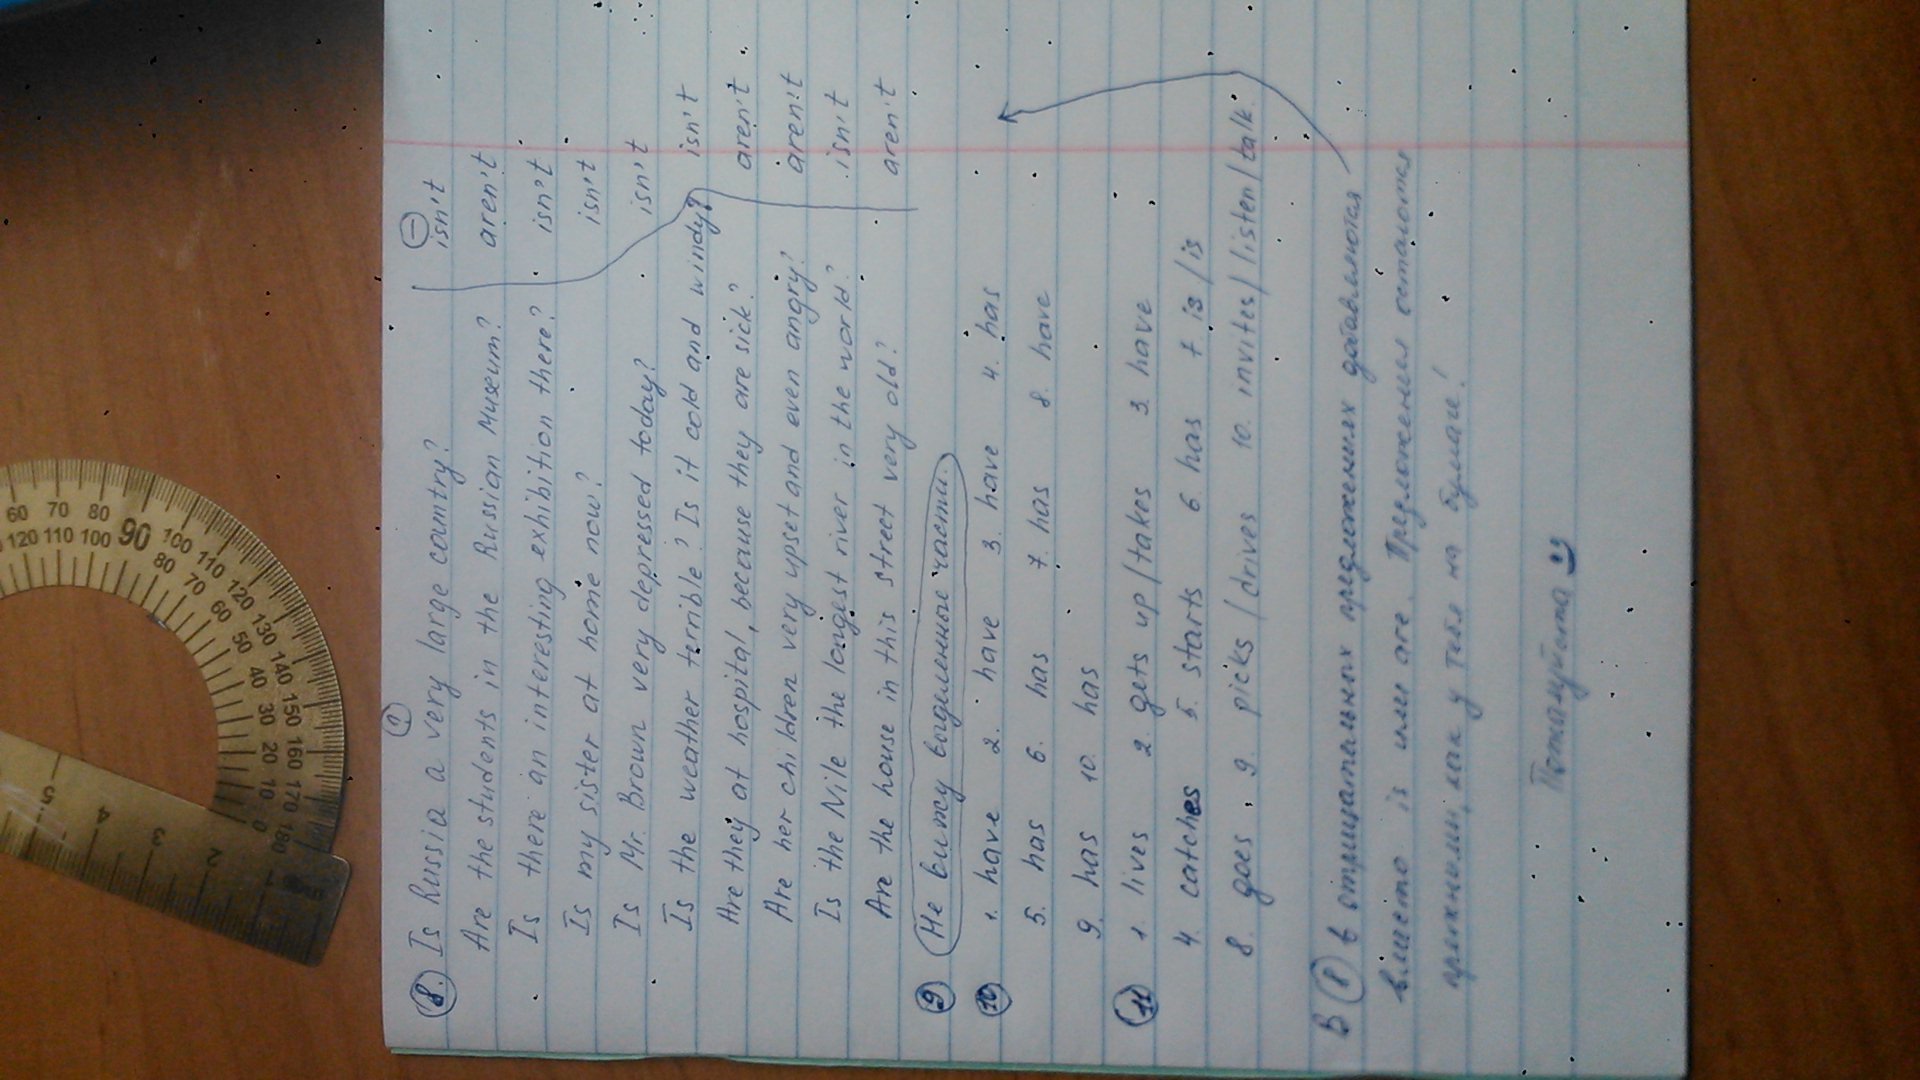 8. ? −
Is Russia a very large country? isn't
Are the students in the Russian Museum? aren't
Is there an interesting exhibition there? isn't
Is my sister at home now? isn't
Is Mr. Brown very depressed today? isn't
Is the weather terrible? Is it cold and windy? isn't
Are they at hospital, because they are sick? aren't
Are her children very upset and even angry? aren't
Is the Nile the longest river in the world? isn't
Are the house in this street very old? aren't
9 Не вижу выделенные части.
10 1. have 2. have 3. have 4. has
5. has 6. has 7. has 8. have
9. has 10. has
11 1. lives 2. gets up/takes 3. have
4. catches 5. starts 6 has 7 is/is
8. goes 9. picks/drives 10. invites/listen/talk.
В 8 в отрицательных предложениях добавляются
вместо is или are. Предложения остаются
прежними, как у тебя на бумаге!
Пожалуйста
60 70 80 90 100 110 120 130 140 150 160 170 180
120 110 100 80 70 60 50 40 30 20 10 0
5 4 3 2 1